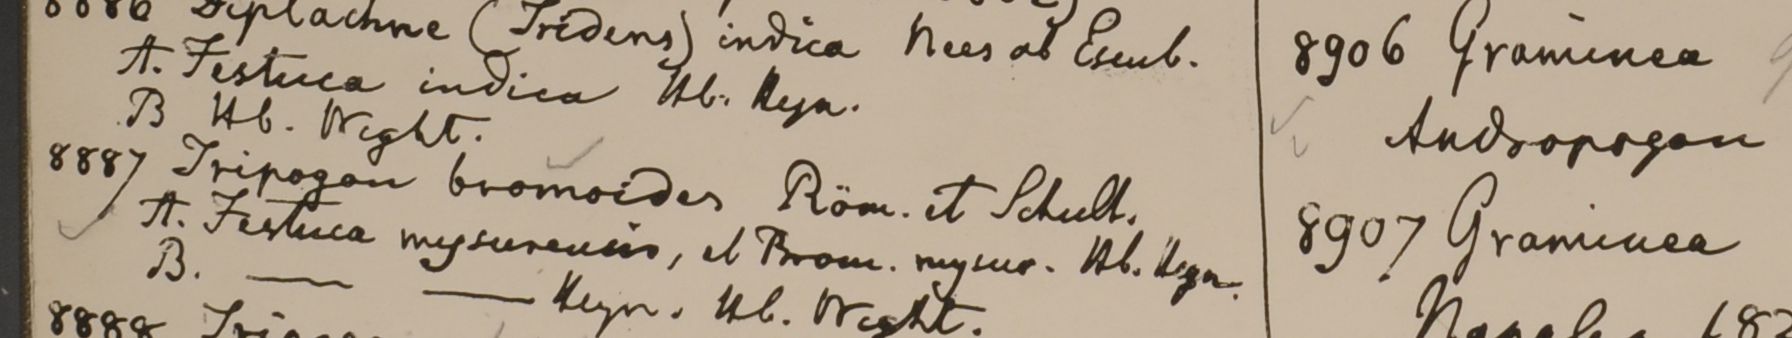 8886 Diplachne (Tridens) indica Nees ab Esenb.
A. Festuca indica Hb. Heyn.
B Hb. Wight.
8887 Tripogon bromoides Röm. et Schult.
A. Festuca mysurensis, et Brom. mysur. Hb. Heyn.
B. — — Heyn. Hb. Wight.
8888
8906 Graminea
Andropogon
8907 Graminea
Napalia 182